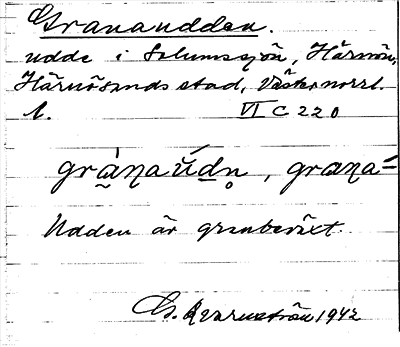 Granaudden.
udde i Solumsjön, Härnön,
Härnösands stad, Västernorrl.
l. VI C 220
grà̰ɳaúdn̥, graɳa=
Udden är granbeväxt.
G. Kvarnström 1942